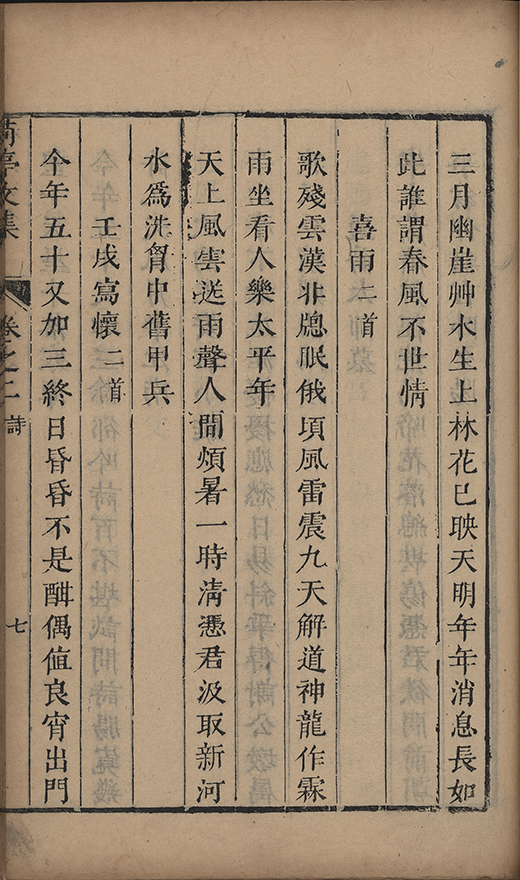 三月幽崖艸木生上林花已映天明年年消息長如
此誰謂春風不世情
喜雨二首
歌殘雲漢非牕眠俄頃風雷震九天解道神龍作霖
雨坐看人樂太平年
天上風雲送雨聲人間煩暑一時清憑君汲取新河
水爲洗胷中舊甲兵
壬戌寫懷二首
今年五十又加三終日昏昏不是酣偶值良宵出門
亭文集 卷之二 詩 七